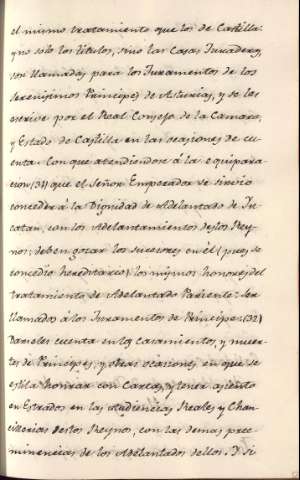 el mismo tratamiento que los de Castilla:
y no solo los titulos, sino las Casas Juradera,
son llamadas para los Juramentos de los
serenisimos Principes de Asturias, y se les
escrive por el Real Consejo de la Camara,
y Estado de Castilla en las ocasiones de cu
enta. Con que atendiendose à la equipara
cion (31) que el Señor Emperador se sirvio
conceder à la Dignidad de Adelantado de Yu
catan, con los Adelantamientos destos Rey
nos, deben gozar los sucesores en èl (pues se
concedio hereditario) los mismos honores del
tratamiento de Adelantado Pariente: Ser
llamados à los Juramentos de Principe: (32)
Darseles cuenta en los casamientos, y muer
tes de Principes, y otras ocasiones en que se
estila honrar con Cartas, y tener asiento
en Estrados en las Audiencias Reales y Chan
cillerias destos Reynos, con las demas pree
minencias de los Adelantados dellos. Y si